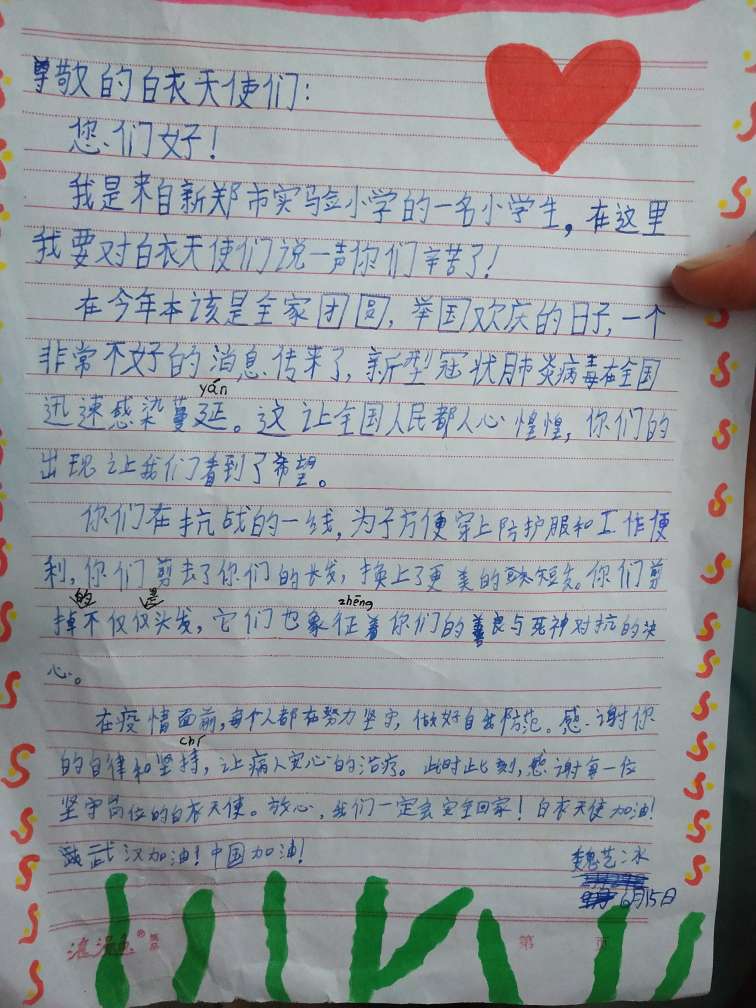 尊敬的白衣天使们：
您们好！
我是来自新郑市实验小学的一名小学生，在这里
我要对白衣天使们说一声你们辛苦了！
在今年本该是全家团圆，举国欢庆的日子，一个
非常不好的消息传来了，新型冠状肺炎病毒在全国
yán
迅速感染蔓延。这让全国人民都人心惶惶，你们的
出现让我们看到了希望。
你们在抗战的一线，为了方便穿上防护服和工作便
利，你们剪去了你们的长发，换上了更美的短发。你们剪
的 是 zhēng
掉不仅仅头发，它们也象征着你们的善良与死神对抗的决
心。
在疫情面前，每个人都在努力坚守，做好自我防范。感谢你
chí
的自律和坚持，让病人安心的治疗。此时此刻，感谢每一位
坚守岗位的白衣天使。放心，我们一定会安全回家！白衣天使加油！
武汉加油！中国加油！
魏艺冰
6月15日
浪漫鱼®
第 页